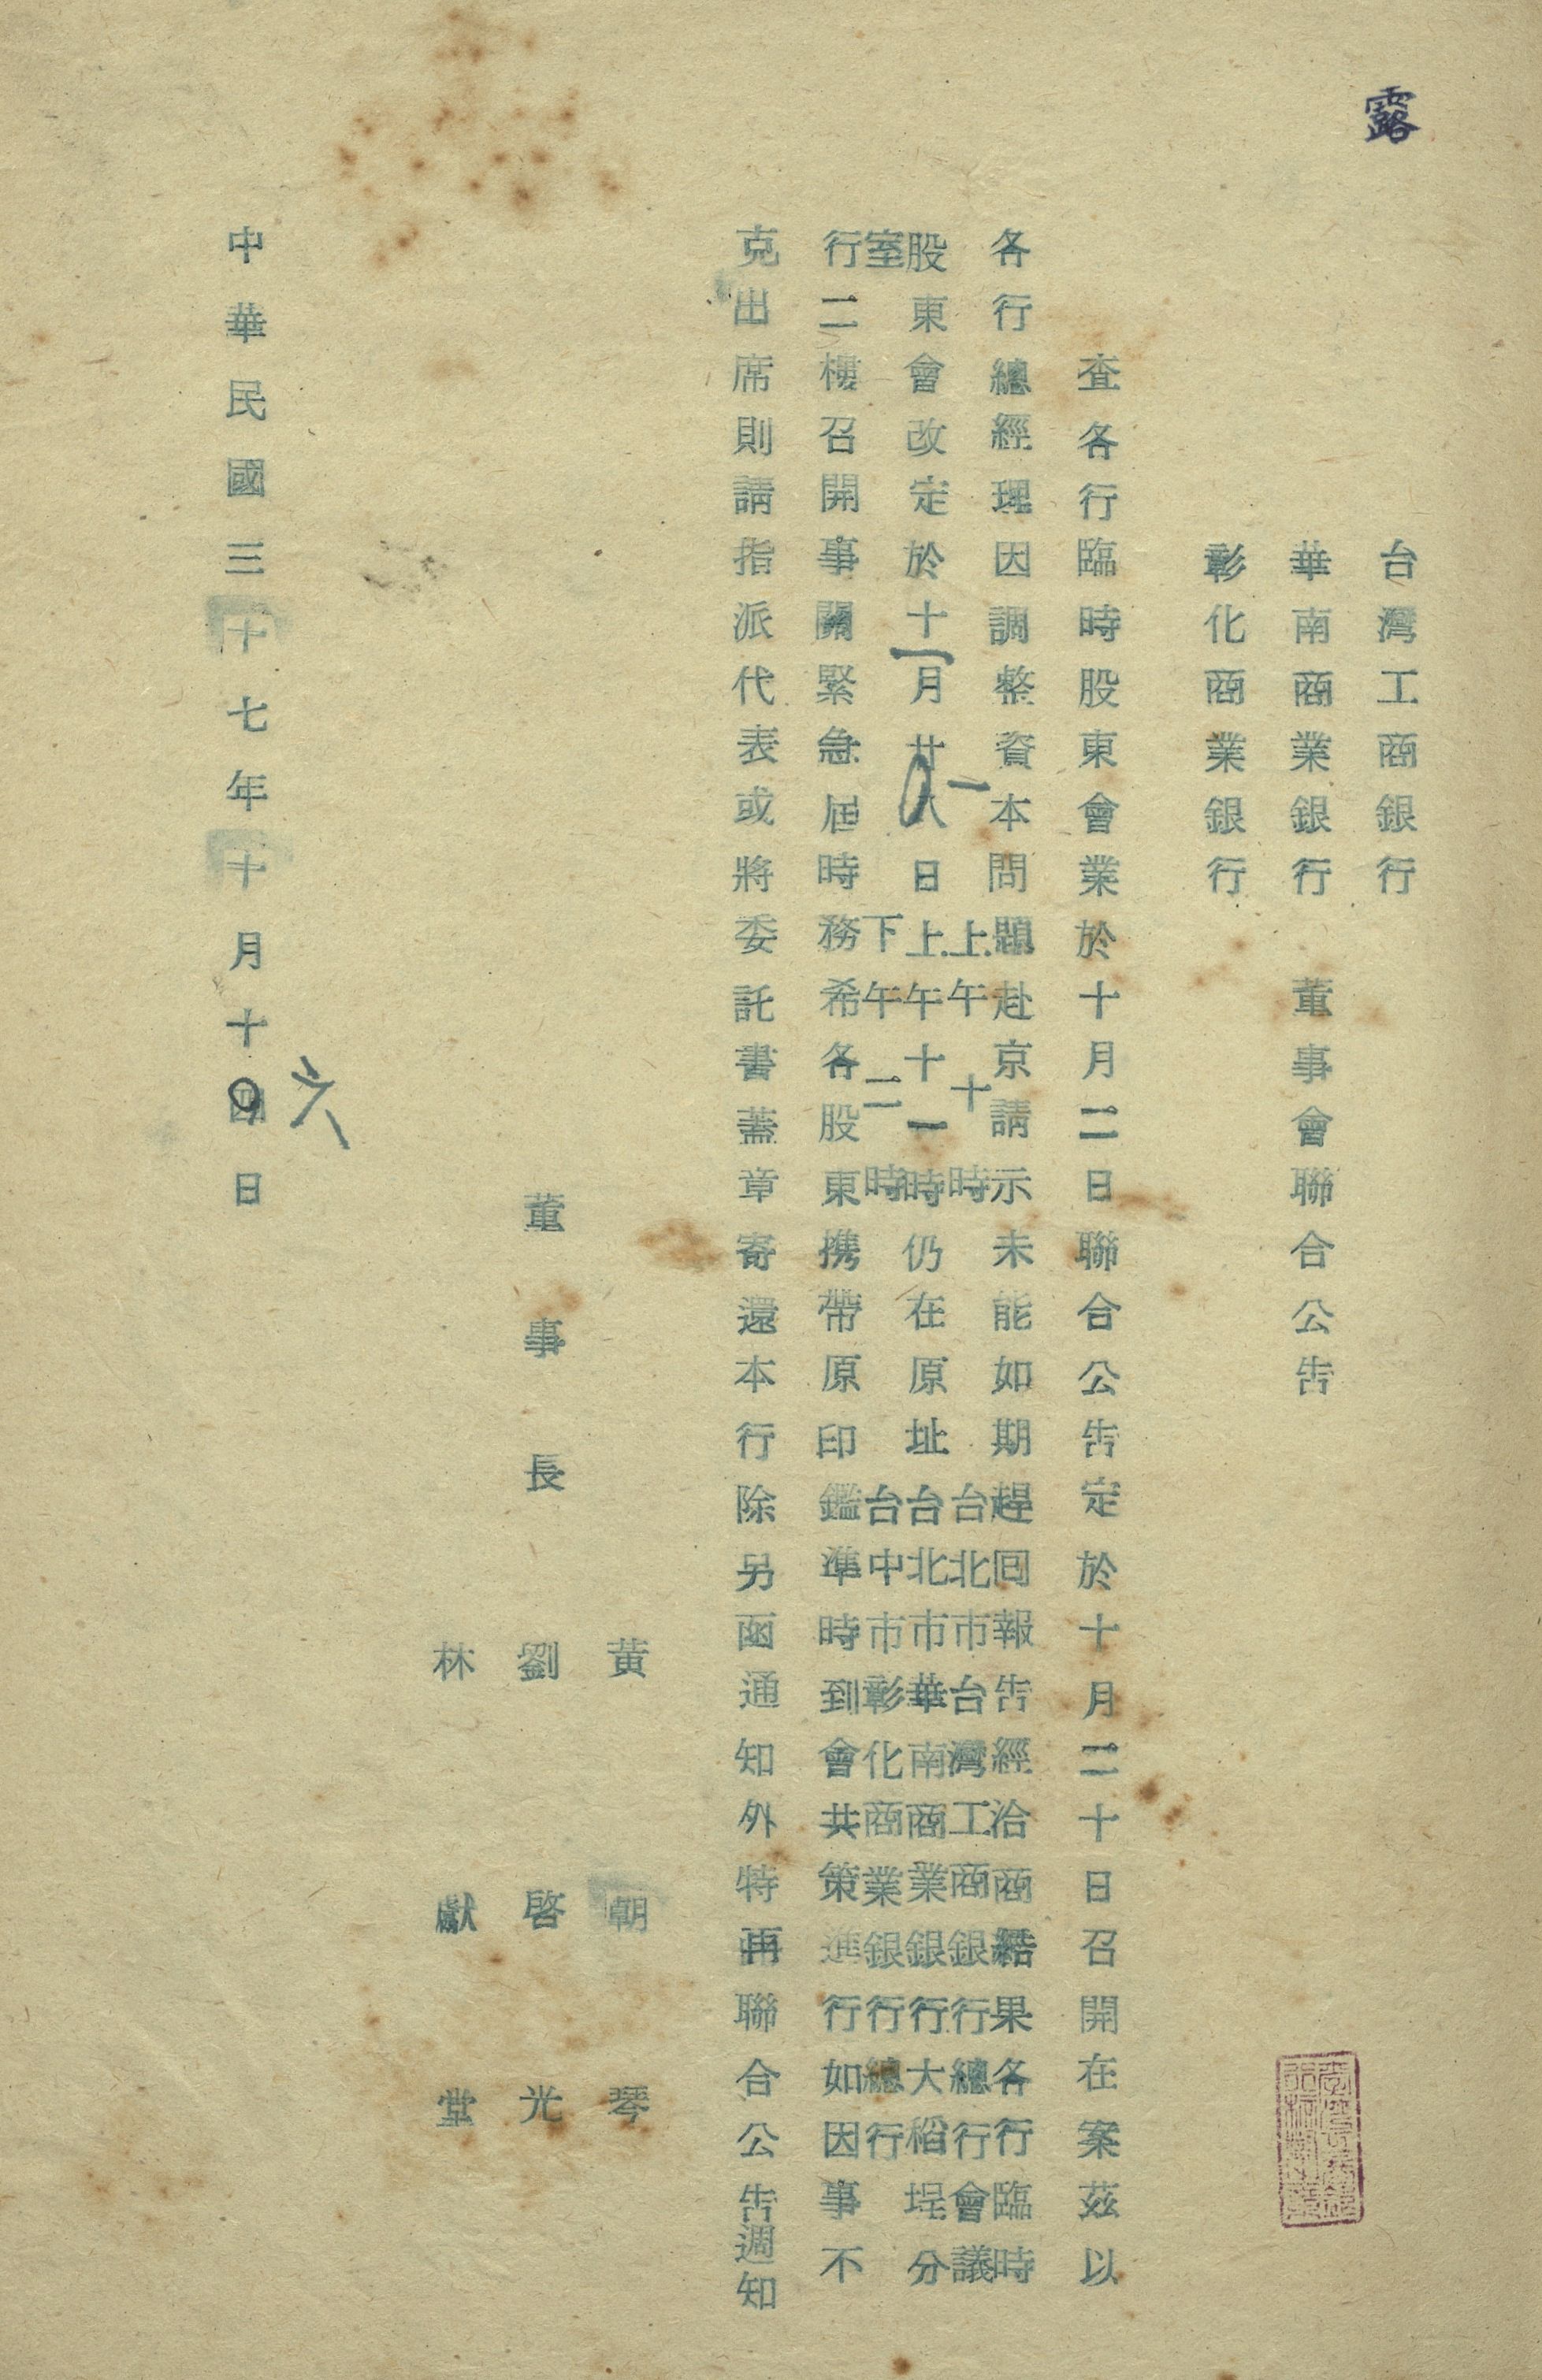 露
台灣工商銀行
華南商業銀行　董事會聯合公告
彰化商業銀行
查各行臨時股東會業於十月二日聯合公告定於十月二十日召開在案茲以
各行總經理因調整資本問題赴京請示未能如期趕回報告經洽商結果各行臨時
上午十時台北市台灣工商銀行總行會議
股東會改定於十一月廿一日上午十一時仍在原址台北市華南商業銀行大稻埕分
室　下午二時台中市彰化商業銀行總行
行二樓召開事關緊急屆時務希各股東携帶原印鑑準時到會共策進行如因事不
克出席則請指派代表或將委託書蓋章寄還本行除另函通知外特再聯合公告週知
黃朝琴
董事長　劉啓光
林獻堂
中華民國三十七年十月十六日